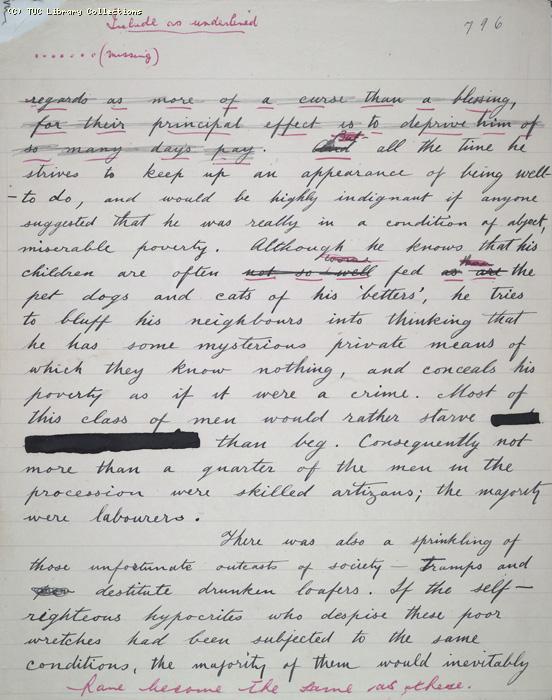 (C) TUC Library Collections
Include as underlined
796
.......(missing)
regards as more of a curse than a blessing,
for their principal effect is to deprive him of
so many days pay. And But all the time he
strives to keep up an appearance of being well-
-to do, and would be highly indignant if anyone
suggested that he was really in a condition of abject,
miserable poverty. Although he knows that his
children are often not so well worse fed as are than the
pet dogs and cats of his 'betters', he tries
to bluff his neighbours into thinking that
he has some mysterious private means of
which they know nothing, and conceals his
poverty as if it were a crime. Most of
this class of men would rather starve
than beg. Consequently not
more than a quarter of the men in the
procession were skilled artizans; the majority
were labourers.
There was also a sprinkling of
those unfortunate outcasts of society — Tramps and
destitute drunken loafers. If the self-
righteous hypocrites who despise these poor
wretches had been subjected to the same
conditions, the majority of them would inevitably
have become the same as these.